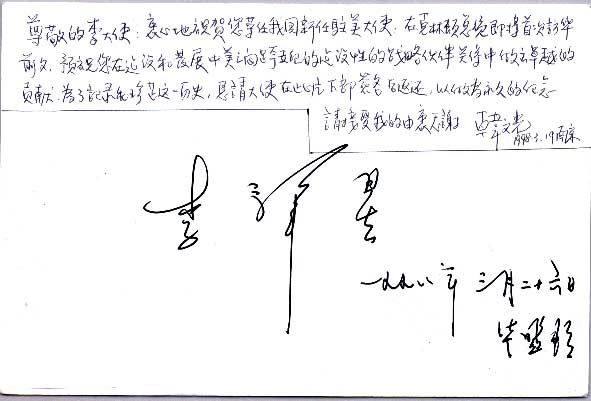 尊敬的李大使：衷心地祝贺您荣任我国新任驻美大使。在克林顿总统即将首次訪华
前夕，预祝您在建设和发展中美之间跨世纪的建设性的战略伙伴关系中做出卓越的
贡献！为了記录和珍念这一历史，恳請大使在此片下部签名后返还，以做为永久的纪念
請接受我的由衷感謝 韓文 1998.3.19
李肇星
一九九八年 三月二十六日
华盛顿